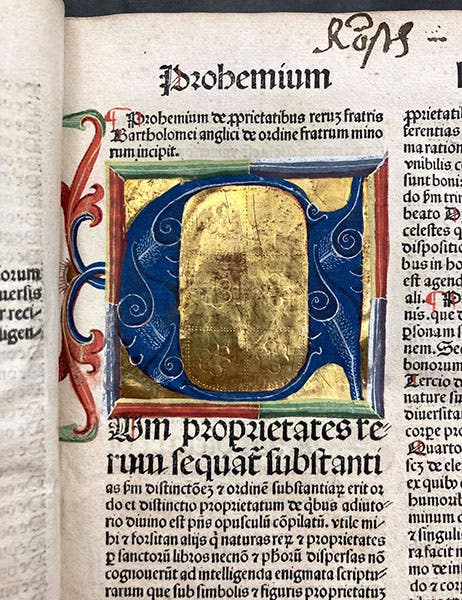 Prohemium
Prohemium de ꝓprietatibus reruꝫ fratris
Bartholomei anglici de ordine fratrum mino
rum incipit.
Cum proprietates re-
rum sequãt̃ substanti
as ẜm distinctõeꝫ ⁊ ordinẽ substantiaꝝ erit or
do ei distinctio proprietatum de q̃bus adiuto
rio diuino est pñs opusculũ cõpilatũ. vtile mi
hi ⁊ forsitan alijs ꝗ naturas reꝝ ⁊ proprietates
ꝑ sanctorũ libros necnõ ⁊ pħorũ dispersas nõ
cognouerũt ad intelligenda enigmata scriptu-
rarum que sub simbolis ⁊ figuris proprietatuꝫ
lorum
uersis
r reci-
ligen-
ꝓprietati
ferentias
ma ration
vnibilis c
sunt boni:
do ẜm trin
beato D
celestes q
dispositio
bus in ho
est agend
ali. P
nis. que d
personam s
nem. Sec
bonorum
Tercio d
nature sin
diuersita
corpe pro
Quarto
seꝫ de ele
ex quibꝰ
humoribꝰ
minimum
⁊ singulis
ra facit n
mo de in
do ⁊ colo